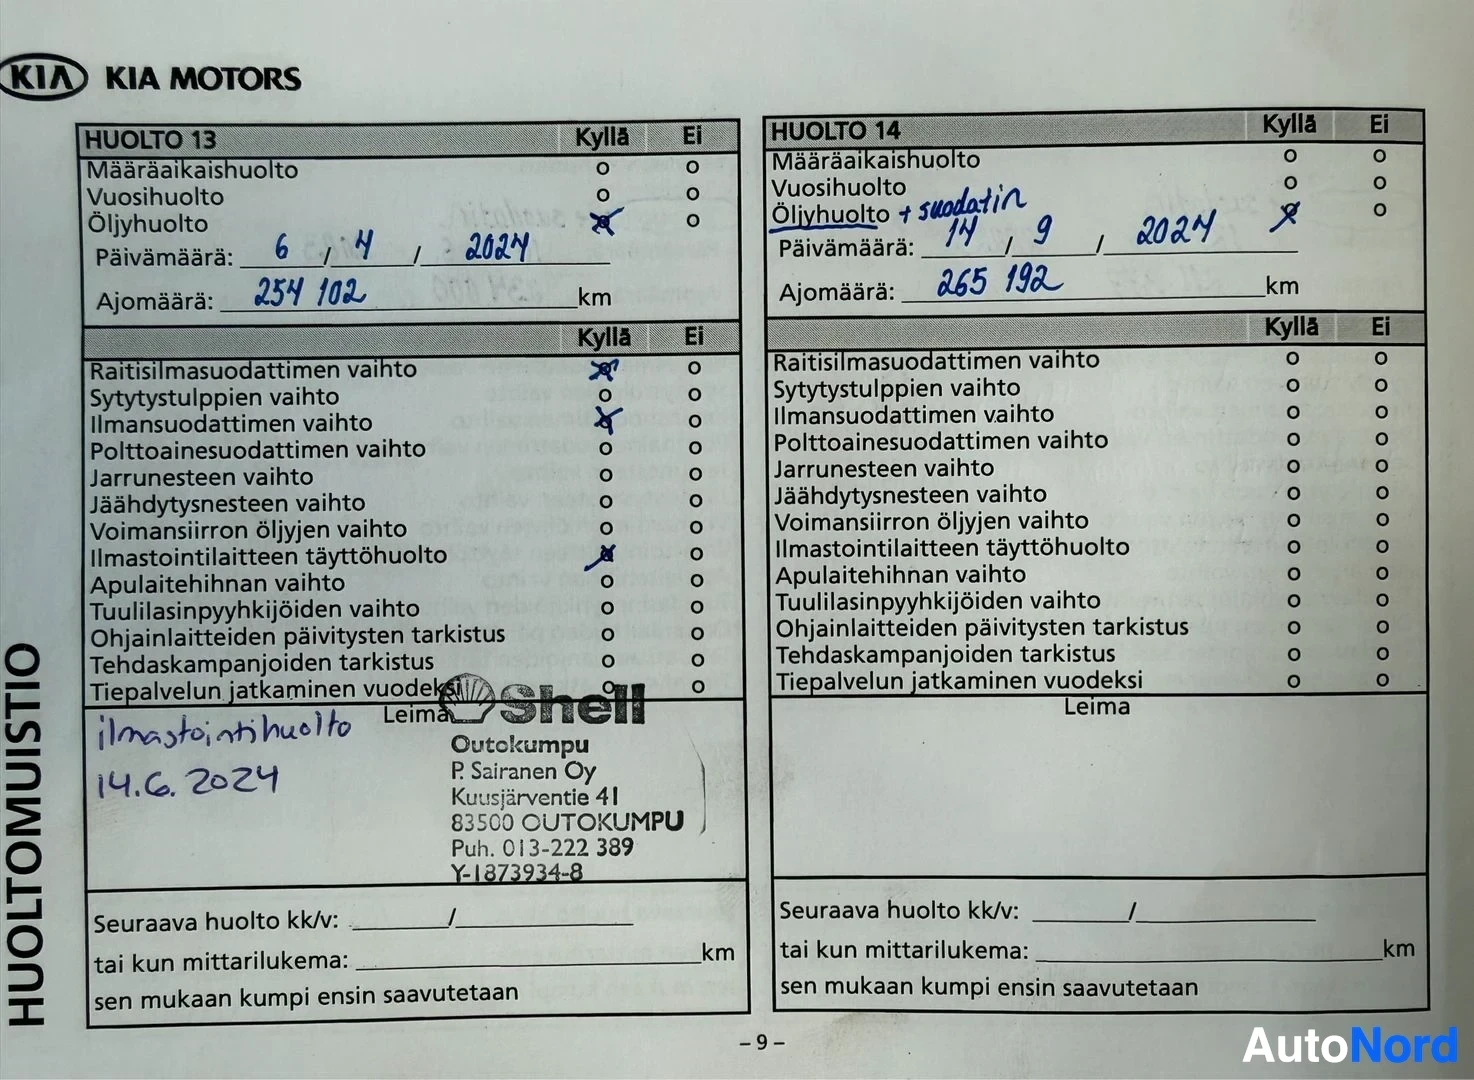 KIA KIA MOTORS
HUOLTO 13 Kyllä Ei
Määräaikaishuolto o o
Vuosihuolto o o
Öljyhuolto x o
Päivämäärä: 6 / 4 / 2024
Ajomäärä: 254 102 km
Kyllä Ei
Raitisilmasuodattimen vaihto x o
Sytytystulppien vaihto o o
Ilmansuodattimen vaihto x o
Polttoainesuodattimen vaihto o o
Jarrunesteen vaihto o o
Jäähdytysnesteen vaihto o o
Voimansiirron öljyjen vaihto o o
Ilmastointilaitteen täyttöhuolto x o
Apulaitehihnan vaihto o o
Tuulilasinpyyhkijöiden vaihto o o
Ohjainlaitteiden päivitysten tarkistus o o
Tehdaskampanjoiden tarkistus o o
Tiepalvelun jatkaminen vuodeksi o o
Leima
ilmastointihuolto
14.6.2024
Shell
Outokumpu
P. Sairanen Oy
Kuusjärventie 41
83500 OUTOKUMPU
Puh. 013-222 389
Y-1873934-8
Seuraava huolto kk/v: ______/______
tai kun mittarilukema: ______ km
sen mukaan kumpi ensin saavutetaan
HUOLTO 14 Kyllä Ei
Määräaikaishuolto o o
Vuosihuolto o o
Öljyhuolto + suodatin x o
Päivämäärä: 14 / 9 / 2024
Ajomäärä: 265 192 km
Kyllä Ei
Raitisilmasuodattimen vaihto o o
Sytytystulppien vaihto o o
Ilmansuodattimen vaihto o o
Polttoainesuodattimen vaihto o o
Jarrunesteen vaihto o o
Jäähdytysnesteen vaihto o o
Voimansiirron öljyjen vaihto o o
Ilmastointilaitteen täyttöhuolto o o
Apulaitehihnan vaihto o o
Tuulilasinpyyhkijöiden vaihto o o
Ohjainlaitteiden päivitysten tarkistus o o
Tehdaskampanjoiden tarkistus o o
Tiepalvelun jatkaminen vuodeksi o o
Leima
Seuraava huolto kk/v: ______/______
tai kun mittarilukema: ______ km
sen mukaan kumpi ensin saavutetaan
HUOLTOMUISTIO
– 9 –
AutoNord